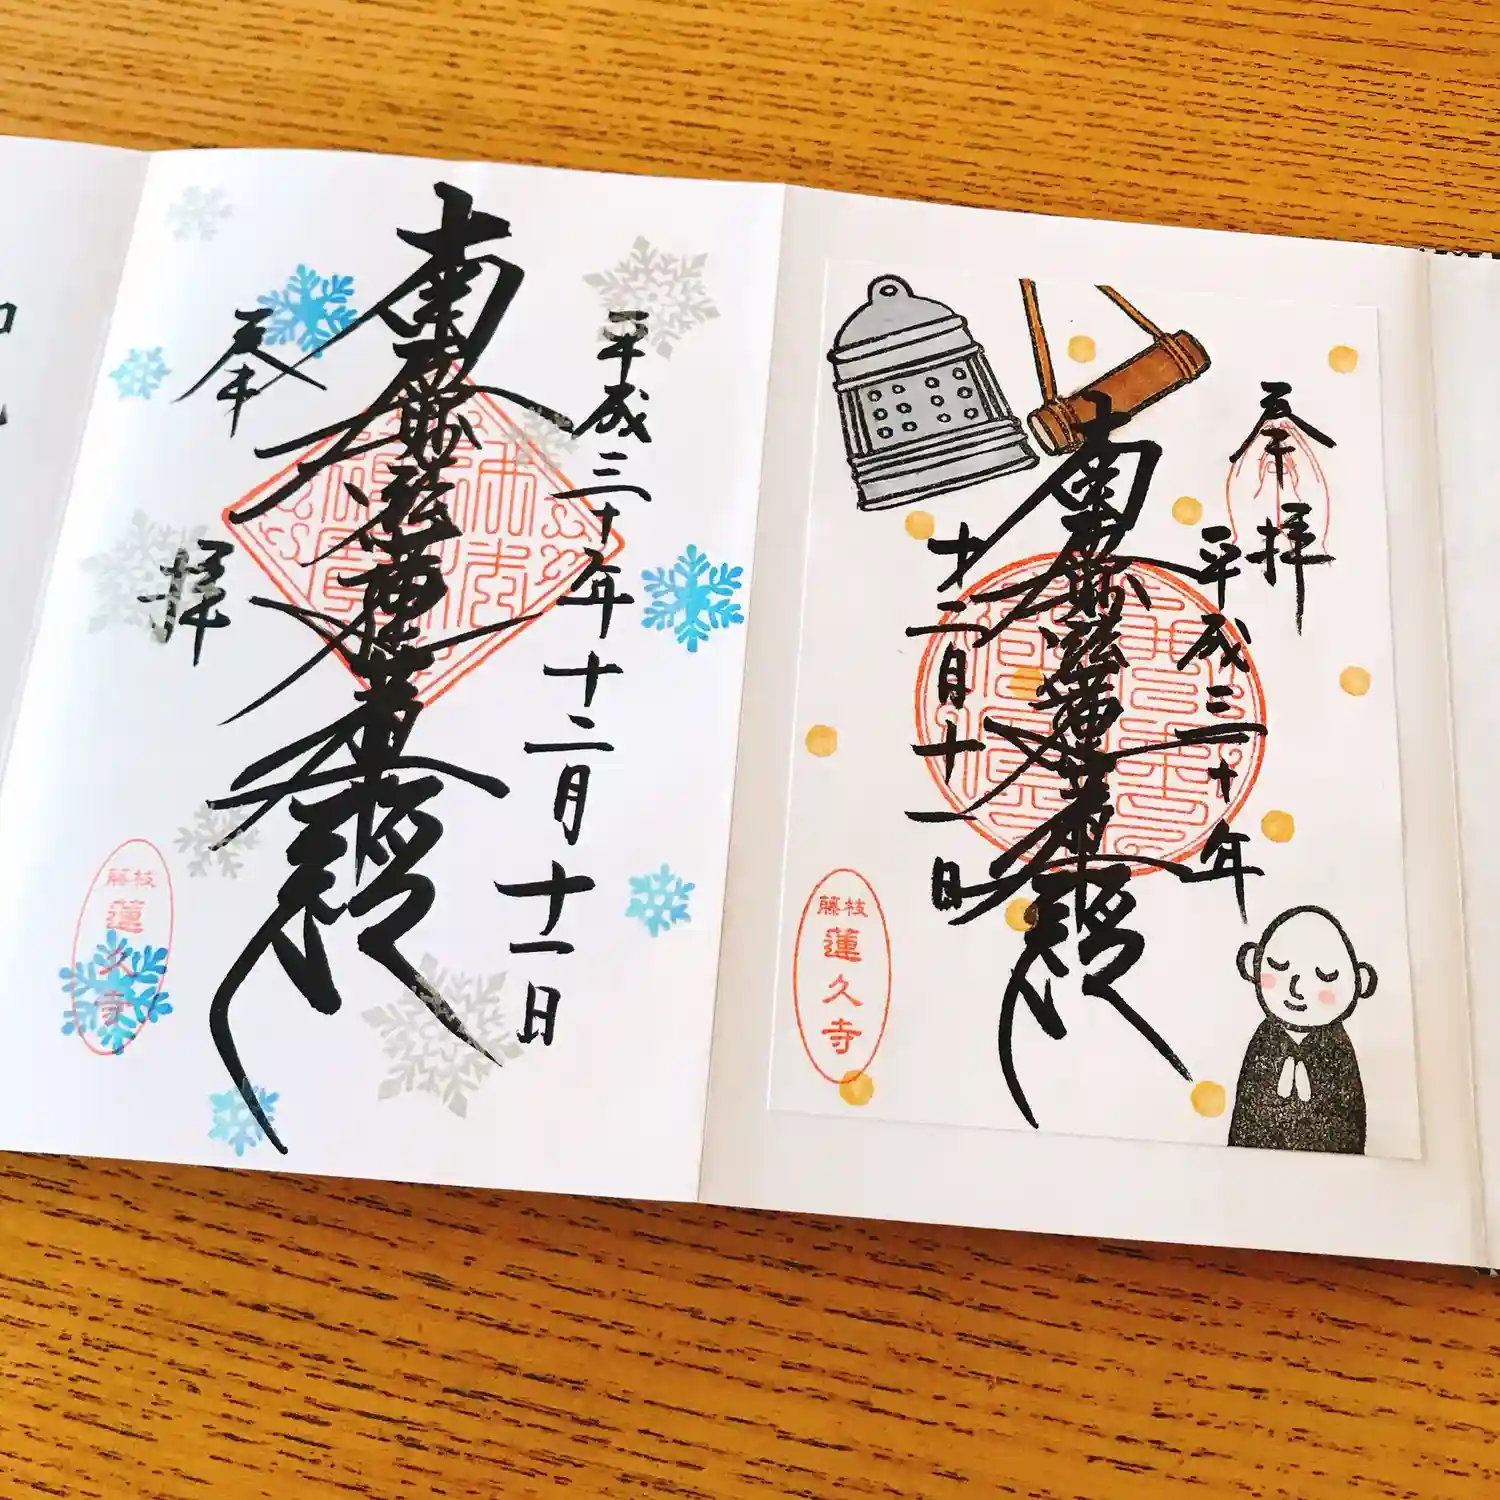 平成三十年十二月十一日
南無妙法蓮華経
奉拝
藤枝
蓮久寺
奉拝
平成三十年
南無妙法蓮華経
十二月十一日
藤枝
蓮久寺